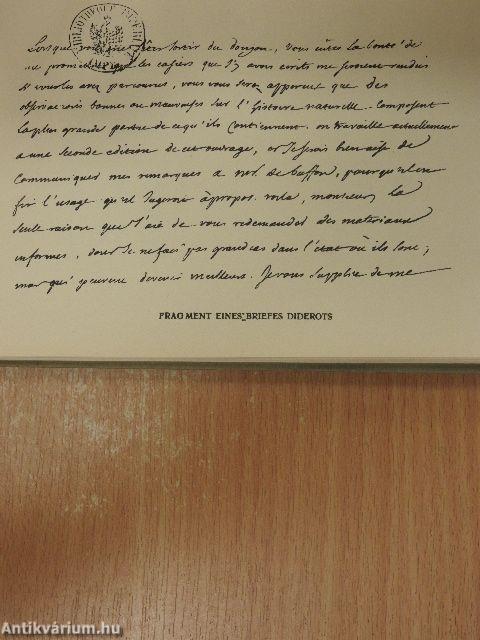 Lorsque vous sortir du donjon, vous eûtes la bonté de
me promettre que les cahiers que j'y avois ecrits me seroient rendus
si vous les avez parcourus, vous vous serez apperçut que des
observations bonnes ou mauvaises sur l'histoire naturelle composent
la plus grande partie de ce qu'ils contiennent. on travaille actuellement
a une seconde edition de cet ouvrage, et je serois bien aise de
communiquer mes remarques a mr. de buffon, pour qu'il en
fit l'usage qu'il jugeroit àpropos. voila, monsieur, la
seule raison que j'aie de vous redemander des materiaux
informes, dont je ne fais pas grand cas dans l'état où ils sont;
mais qui peuvent devenir meilleurs. Je vous supplie de me
FRAGMENT EINES BRIEFES DIDEROTS
Antikvárium.hu